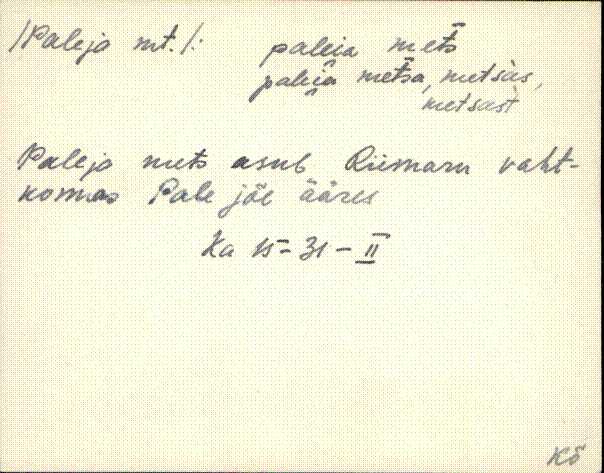 /Paleja mt./: paleia mets
paleia metsa, metsas,
metsast
Paleja mets asub Riimaru vaht-
konnas Pale jõe ääres
Ka 15-31-II
KÕ